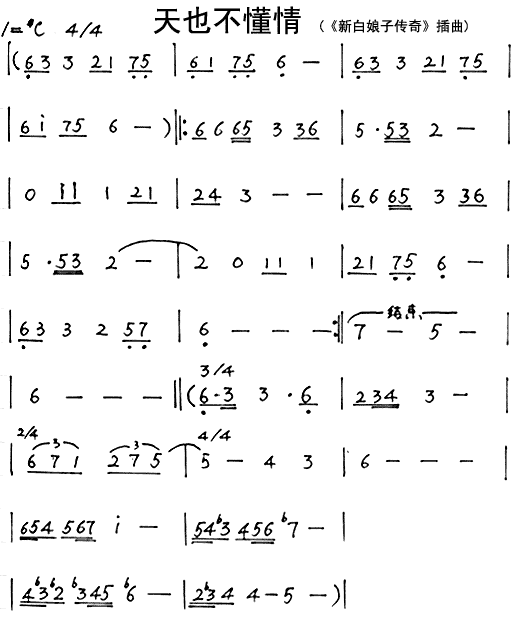 天也不懂情 (《新白娘子传奇》插曲)
1=#C 4/4
|(63 3 21 75 | 61 75 6 - | 63 3 21 75 |
| 6i 75 6 - )||: 6 6 65 3 36 | 5 · 53 2 - |
| 0 11 1 21 | 24 3 - - | 6 6 65 3 36 |
| 5 · 53 2 - | 2 0 11 1 | 21 75 6 - |
| 63 3 2 57 | 6 - - - :|| 7 - 5 - |
结束
| 6 - - - ||( 6·3 3 · 6 | 234 3 - |
3/4
2/4 3 3 4/4
| 671 275 | 5 - 4 3 | 6 - - - |
| 654 567 i - | 54b3 456 b7 - |
| 4b3b2 b345 b6 - | 2b34 4 - 5 - )|